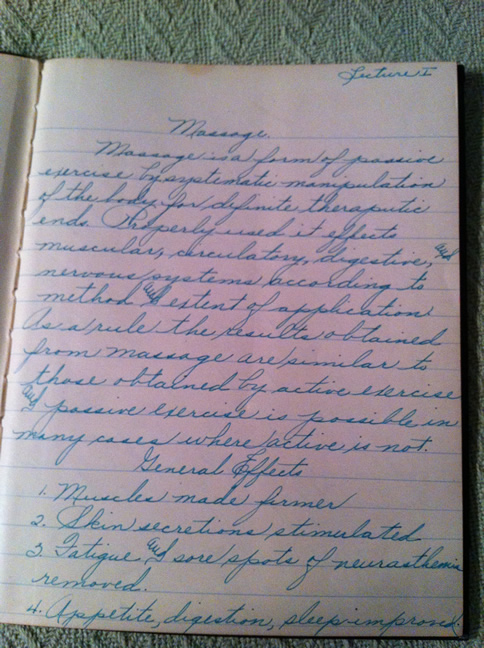 Lecture I
Massage.
Massage is a form of passive
exercise by systematic manipulation
of the body, for definite theraputic
ends. Properly used it effects
muscular, circulatory, digestive, and
nervous systems according to
method and extent of application
As a rule the results obtained
from massage are similar to
those obtained by active exercise
and passive exercise is possible in
many cases where active is not.
General Effects
1. Muscles made firmer
2. Skin secretions stimulated
3. Fatigue and sore spots of neurasthemia
removed.
4. Appetite, digestion, sleep improved.